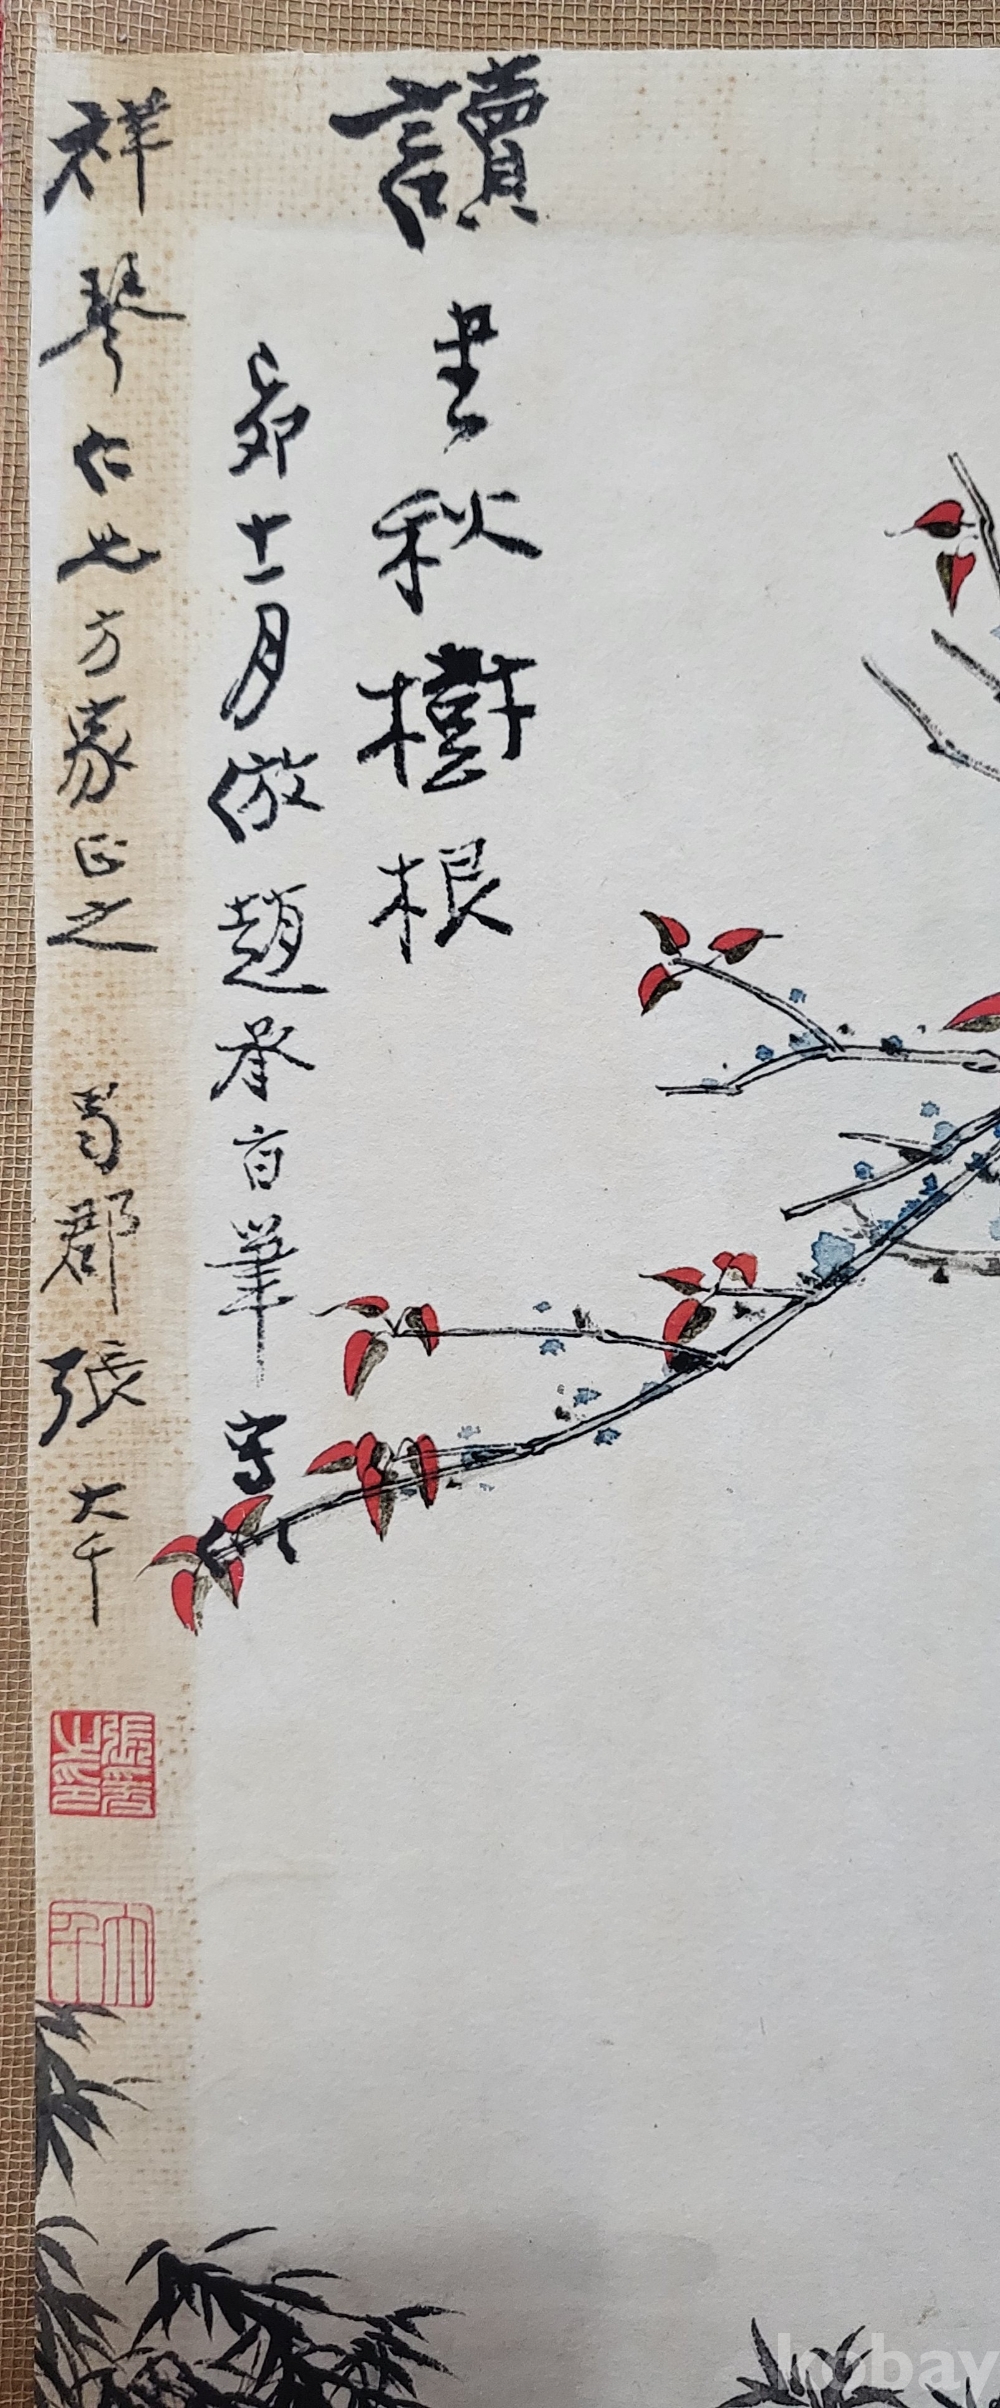 讀書秋樹根
己卯十一月倣趙承旨筆寫
祥琴仁兄方家正之 蜀郡張大千
張爰之印
大千
kobay